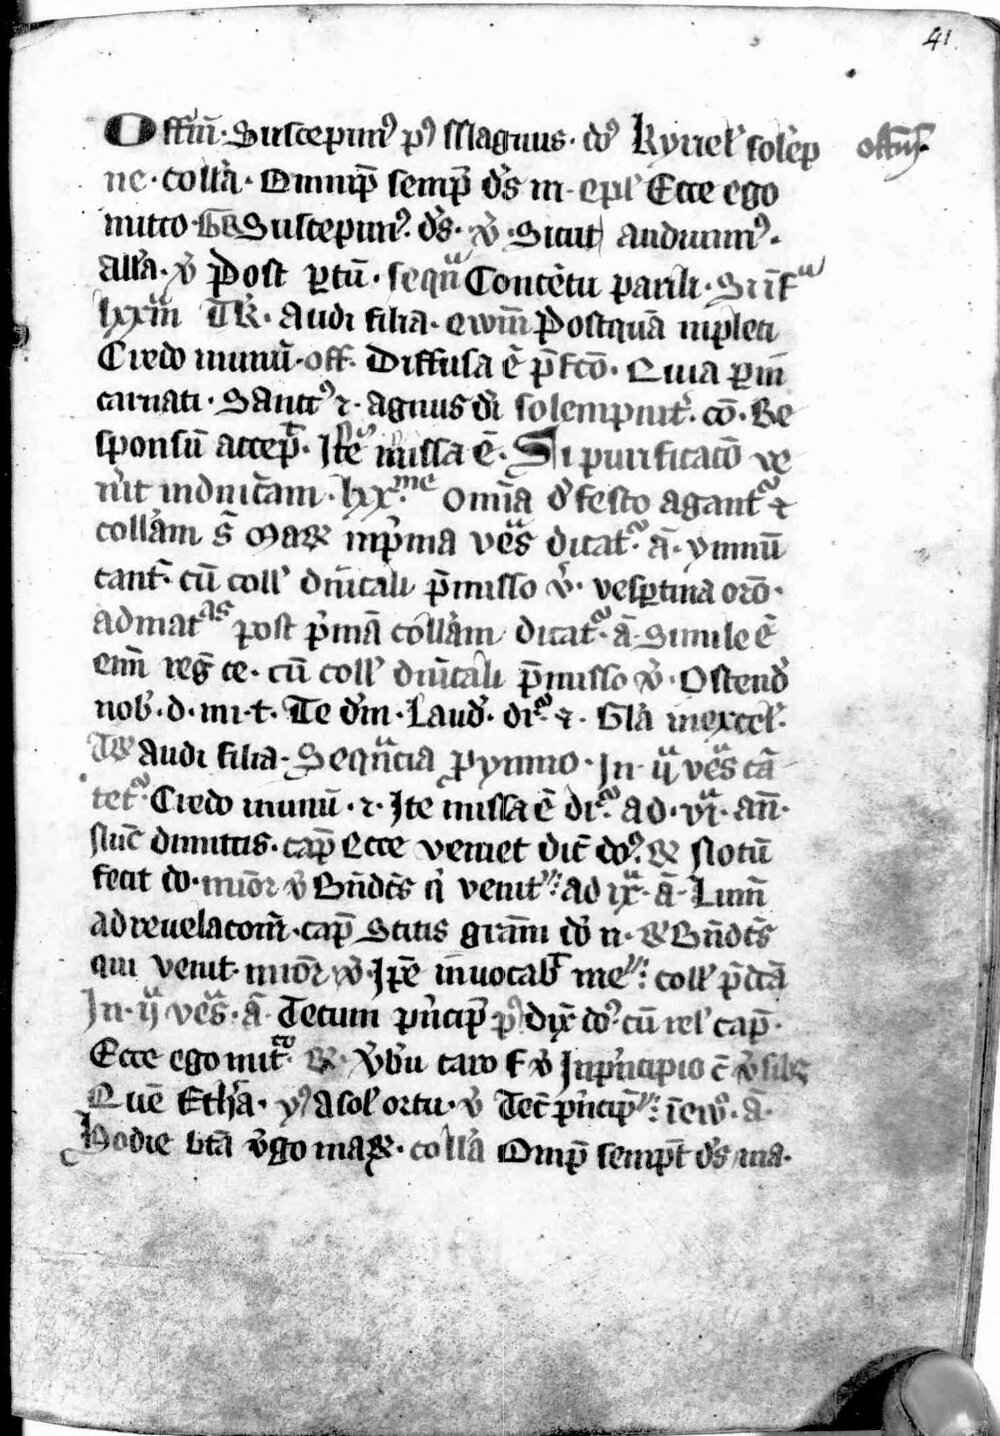 41
Offm̄ · Suscepim⁹ p̄s Magnus · do⁹ kyriel' solēp
ne · coll'a · Omnip̄ semp̄ ds̄ in · epl' Ecce ego
mitto · Suscepim⁹ · ds̄ · v̄ · Sicut audivim⁹ ·
all'a · v̄ Post ptū · seqū Concētu parili ·
lxxm̄ Tr̄ · Audi filia · ewm̄ Postquā inpleti
Credo mimū · off · Diffusa ē · Quia p in
carnati · Sanct⁹ ⁊ · agnus di solempnit' · cō · Re
sponsū accep̄ · Jte missa ē · Si purificatō ve
n'it indnicam · lxx.me omīa d' festo agant' ⁊
coll'am s̄ mar inp'ma ves dicat' · ā · ymnū
cant' · cū coll' dnicali p̄misso v̄ · vesptina orō ·
admat as post p'mā coll'am dicat' · ā · Simile ē
eni reg̃ ce · cū coll' dnicali p̄misso v̄ · Ostend'
nob' · d · mi · t · Te dm̄ · Laud' · dr' ⁊ · Gl'a inexcel' ·
Tr̄ audi filia · Seqūcia p ymno · Jn · ij ves cā
tet' · Credo mimū · ⁊ · Jte missa ē dr' · ad · vi · an̄ ·
Nūc dimittis · cap̄ Ecce veniet dic̄ do⁹ ℟ Notū
fecit do · minor v̄ Bn̄dcs̄ q' venit · ad ix · ā · Lumē
ad revelacom̄ · cap̄ Scitis gram̄ do n · ℟ Bn̄dcs̄
qui venit · minor v̄ · Jpe invocab' me · coll' p̄dcā
Jn · ij ves · ā · Tecum p'ncip̄ p̄s dix̄ do⁹ · cū rel' cap̄ ·
Ecce ego mitto · ℟ · V'bū caro f v̄ Jnp'ncipio ·
Quē Eth'a · y⁹ A sol' ortu · v̄ Tec̄ p'ncip̄ · ā ·
Hodie btā v'go mar · coll'a Omp̄ sempt̄ ds̄ ma ·